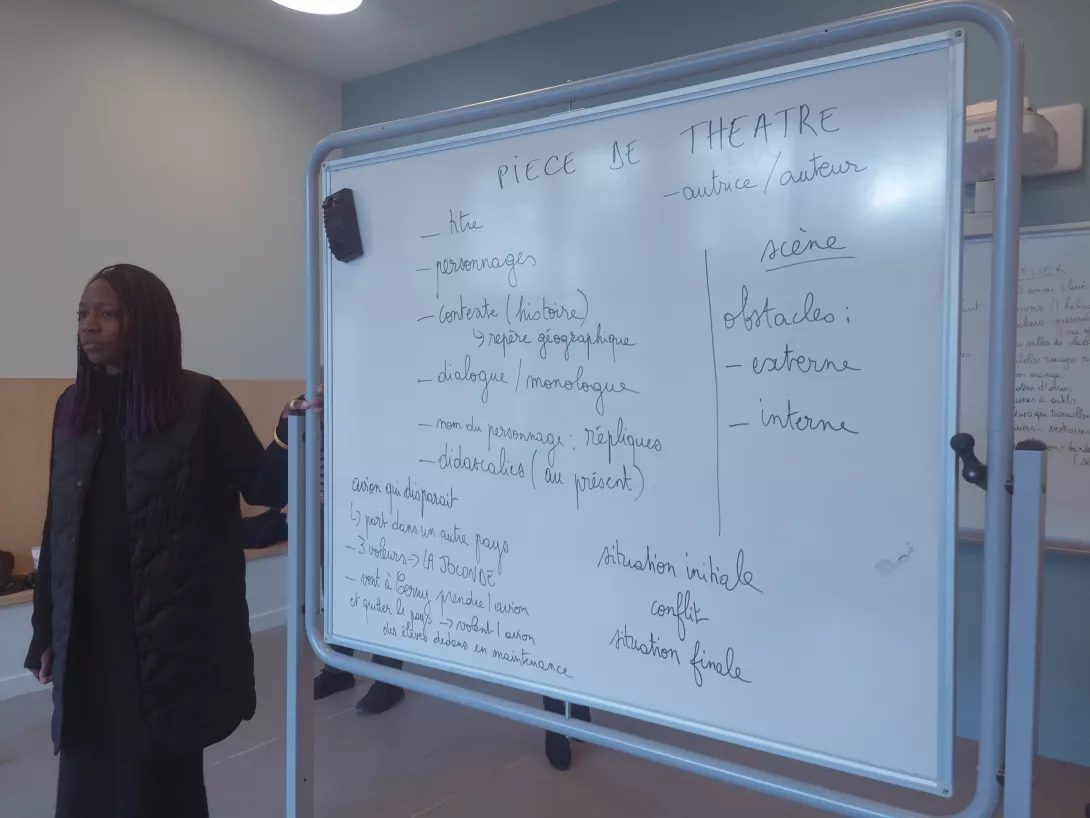 PIECE DE THEATRE
– autrice / auteur
– titre
– personnages
– contexte (histoire)
↳ repère géographique
– dialogue / monologue
– nom du personnage : répliques
– didascalies (au présent)
scène
obstacles :
– externe
– interne
avion qui disparait
↳ part dans un autre pays
– 3 voleurs → LA JOCONDE
– vont à Cerny prendre l'avion
et quitter le pays → volent l'avion
des élèves dedans en maintenance
situation initiale
conflit
situation finale
EPSON